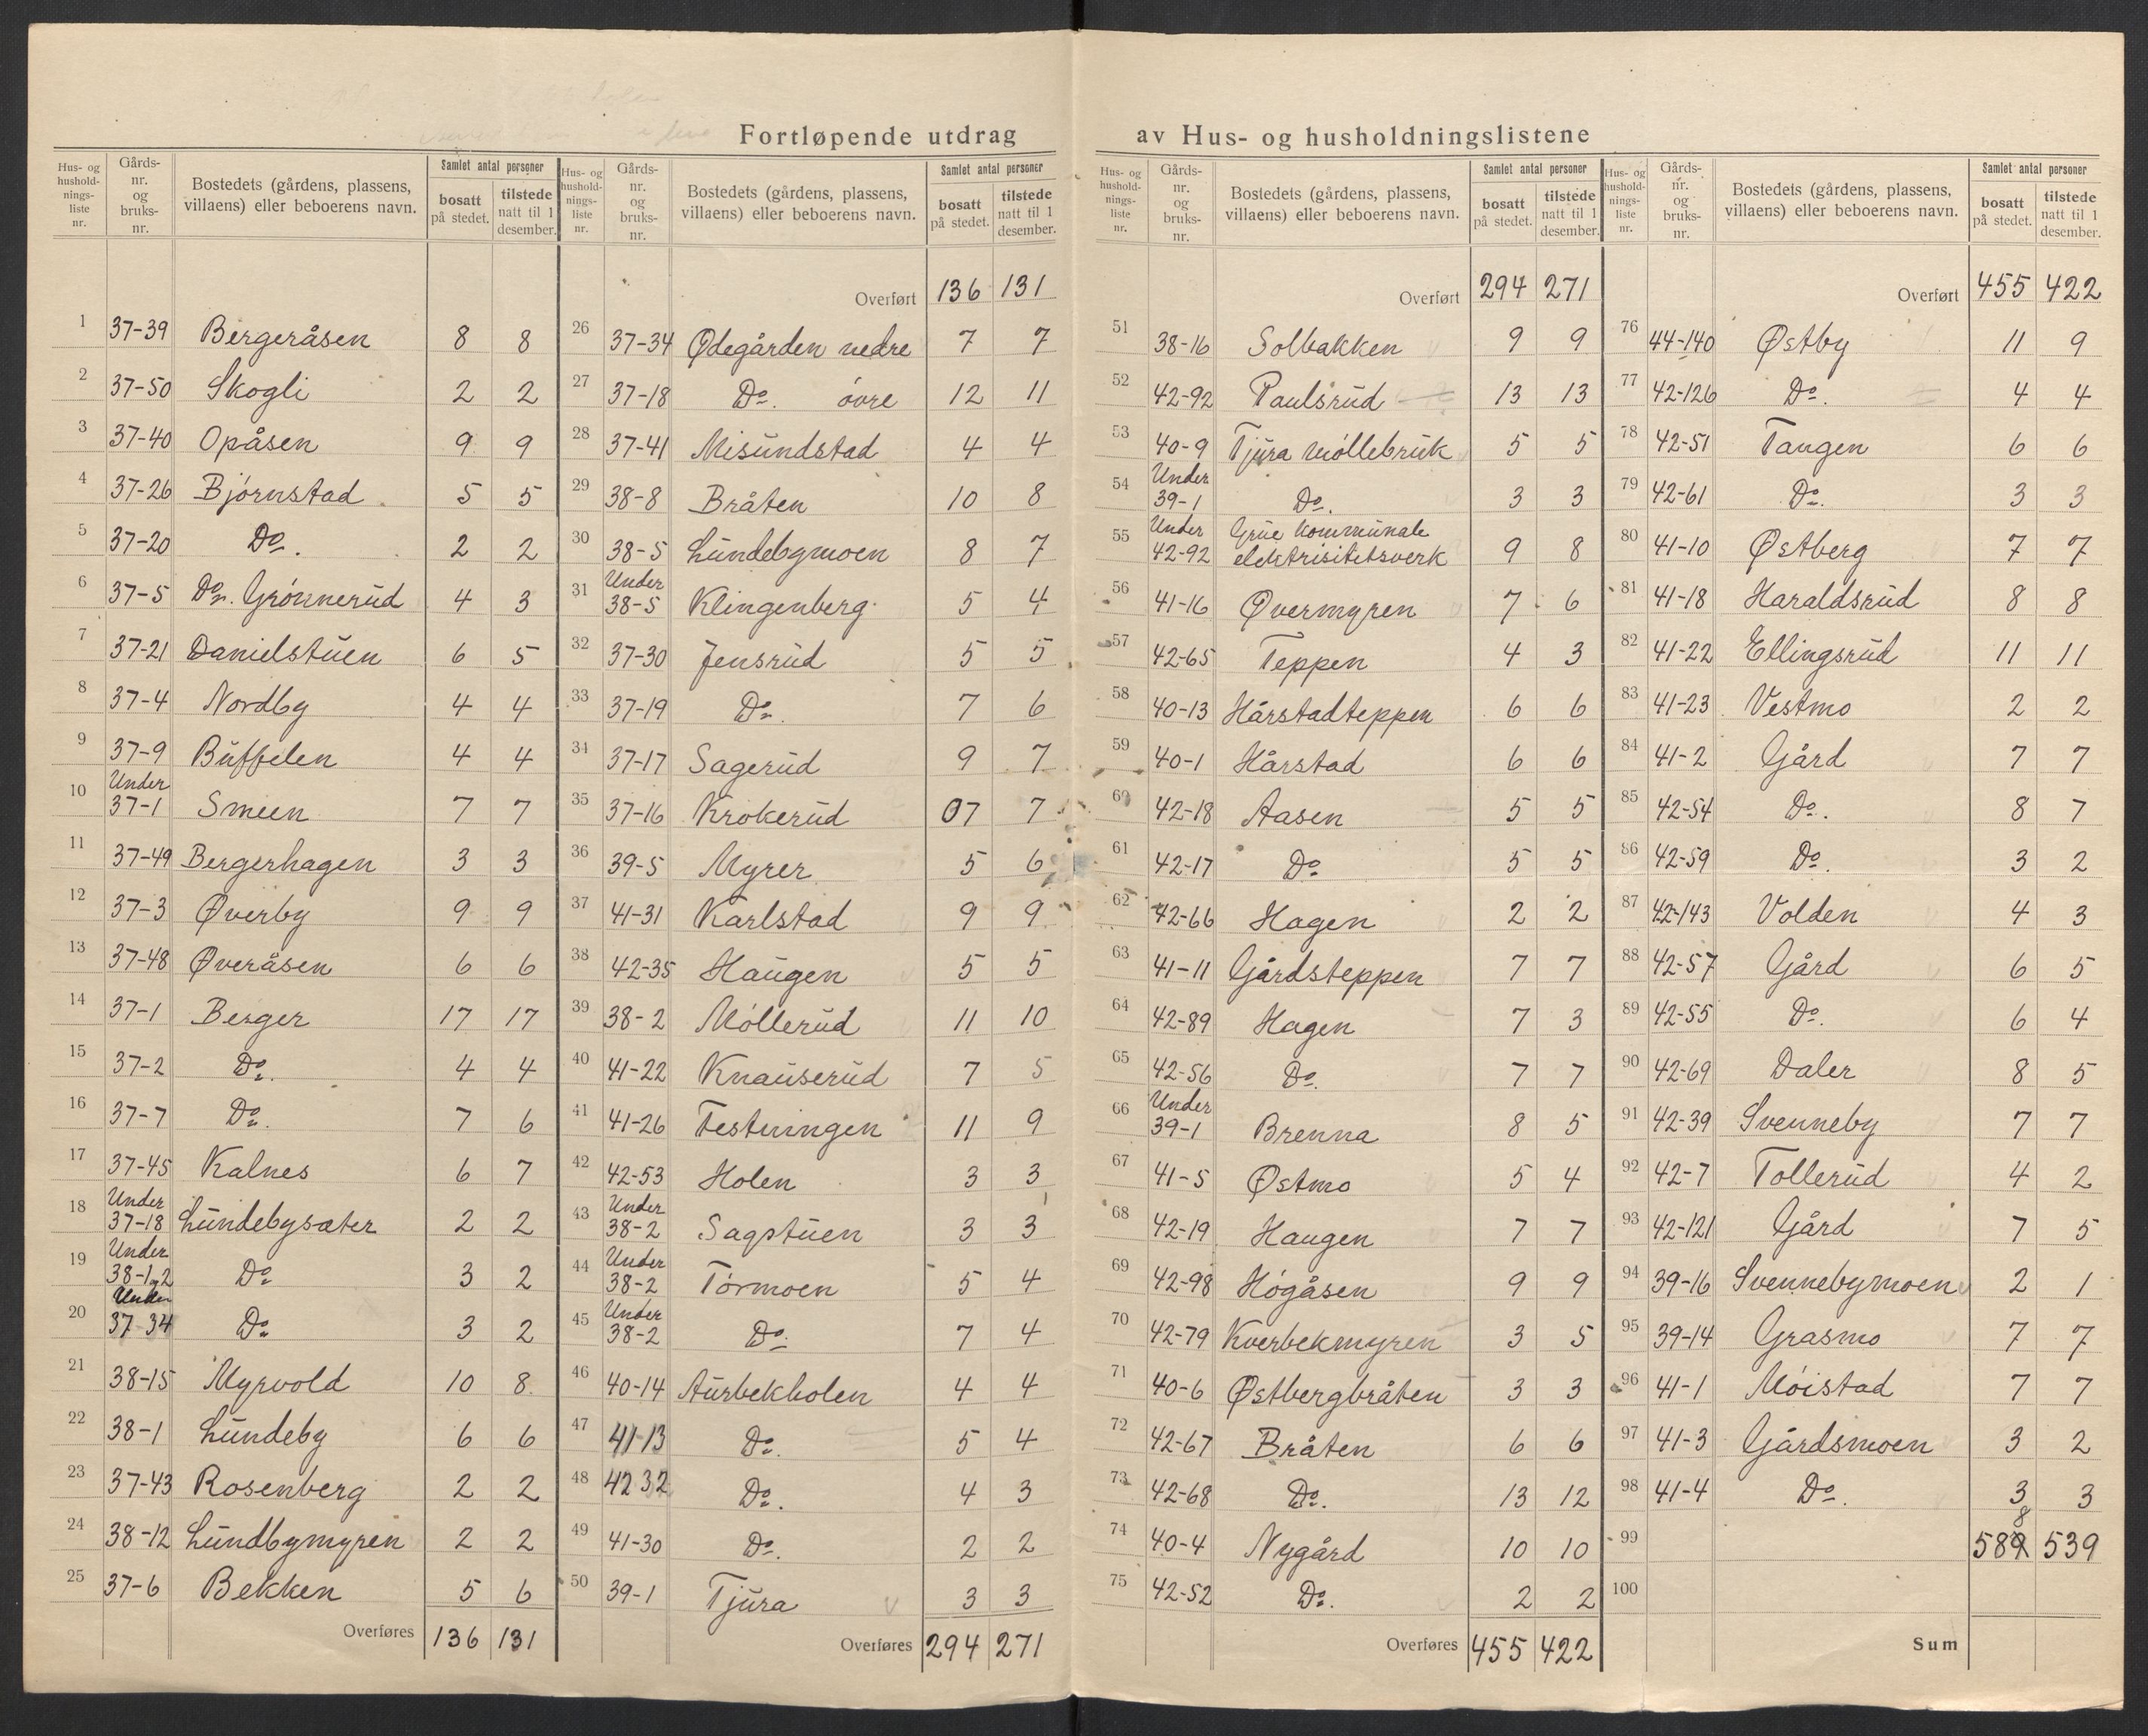 Fortløpende utdrag av Hus- og husholdningslistene
Hus- og husholdnings-liste nr. | Gårds-nr. og bruks-nr. | Bostedets (gårdens, plassens, villaens) eller beboerens navn. | Samlet antal personer bosatt på stedet. | tilstede natt til 1 desember.
1 37-39 Bergeråsen 8 8
2 37-50 Skogli 2 2
3 37-40 Opåsen 9 9
4 37-26 Bjørnstad 5 5
5 37-20 Do. 2 2
6 37-5 Do. Grønnerud 4 3
7 37-21 Danielstuen 6 5
8 37-4 Nordby 4 4
9 37-9 Buffelen 4 4
10 Under 37-1 Smeen 7 7
11 37-49 Bergerhagen 3 3
12 37-3 Øverby 9 9
13 37-48 Øveråsen 6 6
14 37-1 Berger 17 17
15 37-2 Do. 4 4
16 37-7 Do. 7 6
17 37-45 Kalnes 6 7
18 Under 37-18 Lundebysæter 2 2
19 Under 38-1,2 Do 3 2
20 Under 37-34 Do 3 2
21 38-15 Myrvold 10 8
22 38-1 Lundeby 6 6
23 37-43 Rosenberg 2 2
24 38-12 Lundbymyren 2 2
25 37-6 Bekken 5 6
Overføres 136 131
Hus- og husholdnings-liste nr. | Gårds-nr. og bruks-nr. | Bostedets (gårdens, plassens, villaens) eller beboerens navn. | Samlet antal personer bosatt på stedet. | tilstede natt til 1 desember.
Overført 136 131
26 37-34 Ødegården nedre 7 7
27 37-18 Do. øvre 12 11
28 37-41 Misundstad 4 4
29 38-8 Bråten 10 8
30 38-5 Lundebymoen 8 7
31 Under 38-5 Klingenberg 5 4
32 37-30 Jensrud 5 5
33 37-19 Do. 7 6
34 37-17 Sagerud 9 7
35 37-16 Krokerud 07 7
36 39-5 Myrer 5 6
37 41-31 Karlstad 9 9
38 42-35 Haugen 5 5
39 38-2 Møllerud 11 10
40 41-22 Knauserud 7 5
41 41-26 Festningen 11 9
42 42-53 Holen 3 3
43 Under 38-2 Sagstuen 3 3
44 Under 38-2 Tørmoen 5 4
45 Under 38-2 Do. 7 4
46 40-14 Aurbekholen 4 4
47 41-13 Do. 5 4
48 42 32 Do. 4 3
49 41-30 Do. 2 2
50 39-1 Tjura 3 3
Overføres 294 271
Hus- og husholdnings-liste nr. | Gårds-nr. og bruks-nr. | Bostedets (gårdens, plassens, villaens) eller beboerens navn. | Samlet antal personer bosatt på stedet. | tilstede natt til 1 desember.
Overført 294 271
51 38-16 Solbakken 9 9
52 42-92 Paulsrud 13 13
53 40-9 Tjura møllebruk 5 5
54 Under 39-1 Do. 3 3
55 Under 42-92 Grue kommunale elektrisitetsverk 9 8
56 41-16 Øvermyren 7 6
57 42-65 Teppen 4 3
58 40-13 Hårstadteppen 6 6
59 40-1 Hårstad 6 6
60 42-18 Aasen 5 5
61 42-17 Do 5 5
62 42-66 Hagen 2 2
63 41-11 Gårdsteppen 7 7
64 42-89 Hagen 7 3
65 42-56 Do. 7 7
66 Under 39-1 Brenna 8 5
67 41-5 Østmo 5 4
68 42-19 Haugen 7 7
69 42-98 Høgåsen 9 9
70 42-79 Kverbekmyren 3 5
71 40-6 Østbergbråten 3 3
72 42-67 Bråten 6 6
73 42-68 Do. 13 12
74 40-4 Nygård 10 10
75 42-52 Do. 2 2
Overføres 455 422
Hus- og husholdnings-liste nr. | Gårds-nr. og bruks-nr. | Bostedets (gårdens, plassens, villaens) eller beboerens navn. | Samlet antal personer bosatt på stedet. | tilstede natt til 1 desember.
Overført 455 422
76 44-140 Østby 11 9
77 42-126 Do. 4 4
78 42-51 Tangen 6 6
79 42-61 Do. 3 3
80 41-10 Østberg 7 7
81 41-18 Haraldsrud 8 8
82 41-22 Ellingsrud 11 11
83 41-23 Vestmo 2 2
84 41-2 Gård 7 7
85 42-54 Do. 8 7
86 42-59 Do. 3 2
87 42-143 Volden 4 3
88 42-57 Gård 6 5
89 42-55 Do. 6 4
90 42-69 Daler 8 5
91 42-39 Svenneby 7 7
92 42-7 Tollerud 4 2
93 42-121 Gård 7 5
94 39-16 Svennebymoen 2 1
95 39-14 Grasmo 7 7
96 41-1 Møistad 7 7
97 41-3 Gårdsmoen 3 2
98 41-4 Do. 3 3
99 588 539
100
Sum